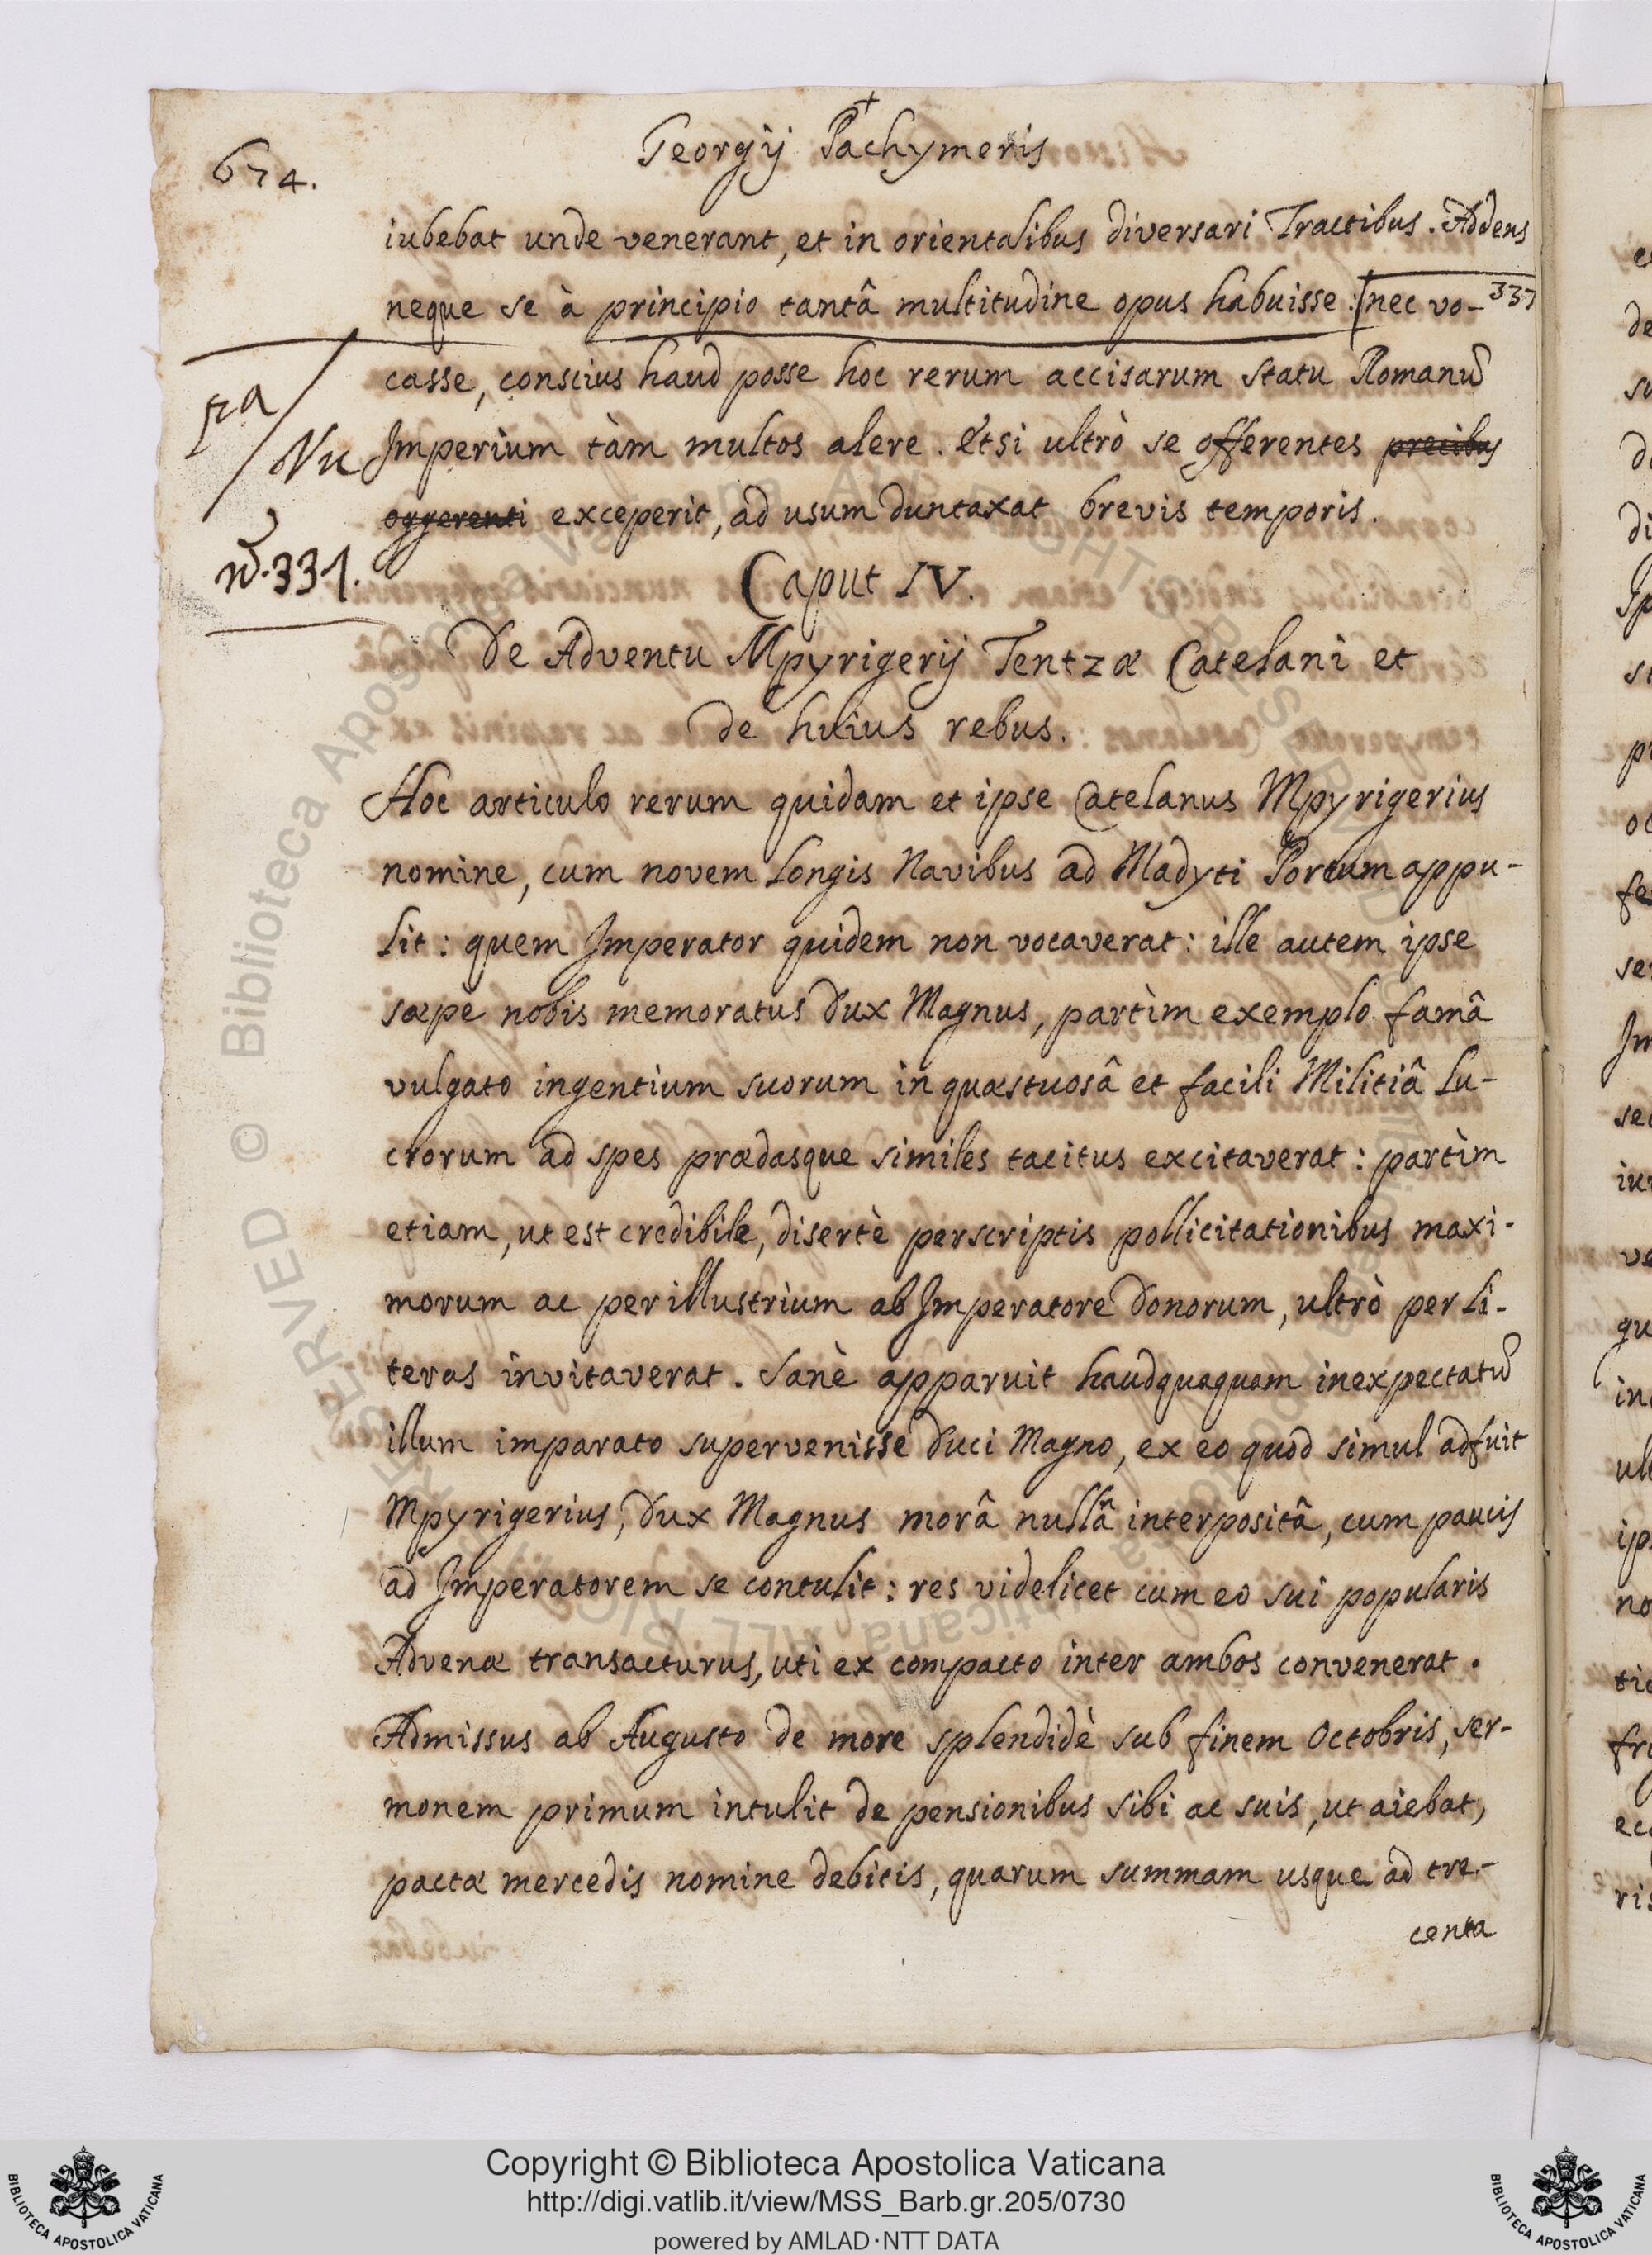 674.
Georgij Pachymeris
iubebat unde venerant, et in orientalibus diversari Tractibus. Addens
neque se à principio tantâ multitudine opus habuisse: [nec vo- 337
casse, conscius haud posse hoc rerum accisarum statu Romanũ
Nu
Imperium tàm multos alere. Etsi ultrò se offerentes precibus
oggerenti exceperit, ad usum duntaxat brevis temporis.
331.
Caput IV.
De Adventu Mpyrigerij Tentzæ Catelani et
de huius rebus.
Hoc articulo rerum quidam et ipse Catelanus Mpyrigerius
nomine, cum novem longis Navibus ad Madyti Portum appu-
lit: quem Imperator quidem non vocaverat: ille autem ipse
sæpè nobis memoratus Dux Magnus, partìm exemplo famâ
vulgato ingentium suorum in quæstuosâ et facili Militiâ lu-
crorum ad spes prædasque similes tacitus excitaverat: partìm
etiam, ut est credibile, disertè perscriptis pollicitationibus maxi-
morum ac perillustrium ab Imperatore Donorum, ultrò per li-
teras invitaverat. Sanè apparuit haudquaquam inexpectatũ
illum imparato supervenisse Duci Magno, ex eo quod simul adfuit
Mpyrigerius, Dux Magnus morâ nullâ interpositâ, cum paucis
ad Imperatorem se contulit: res videlicet cum eo sui popularis
Advenæ transacturus, uti ex compacto inter ambos convenerat.
Admissus ab Augusto de more splendidè sub finem Octobris, ser-
monem primum intulit de pensionibus sibi ac suis, ut aiebat,
pactæ mercedis nomine debitis, quarum summam usque ad tre-
centa
Copyright © Biblioteca Apostolica Vaticana
http://digi.vatlib.it/view/MSS_Barb.gr.205/0730
powered by AMLAD·NTT DATA
BIBLIOTECA APOSTOLICA VATICANA
BIBLIOTECA APOSTOLICA VATICANA